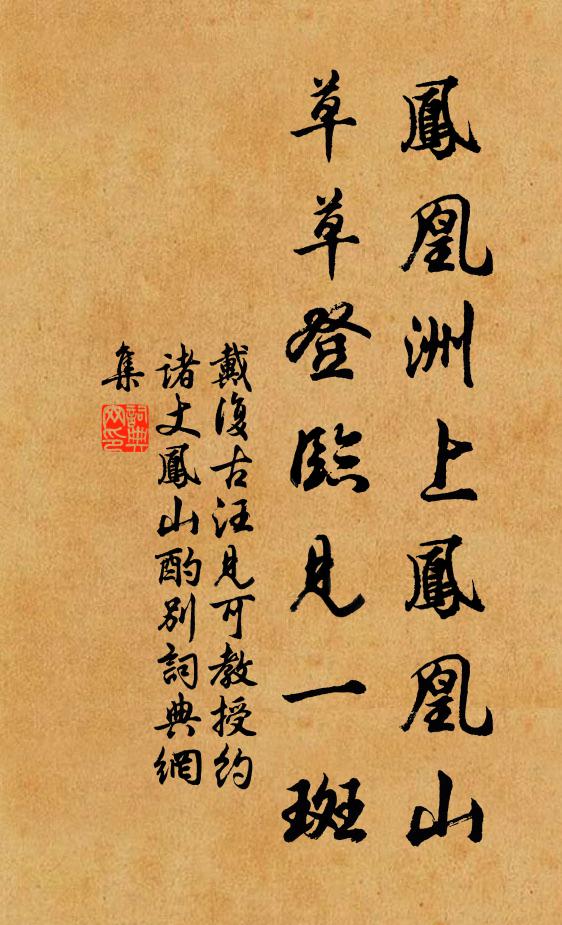 鳳凰洲上鳳凰山
草草登臨見一斑
戴復古汪見可教授約
諸丈鳳山酌別詞典網
集
詞典
网印